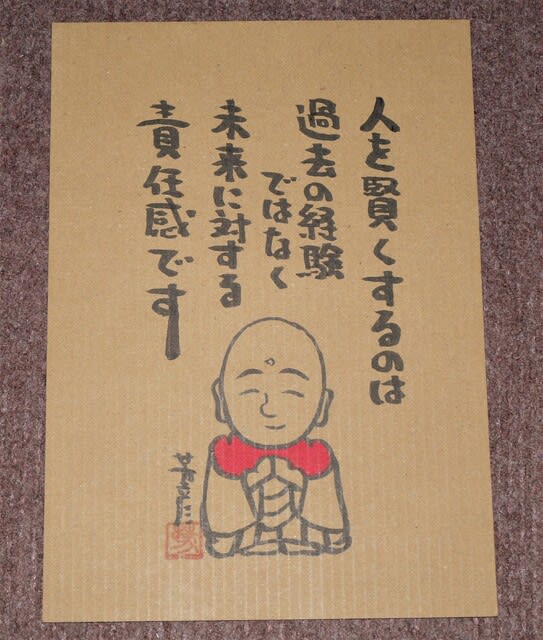 人を賢くするのは
過去の経験
ではなく
未来に対する
責任感です